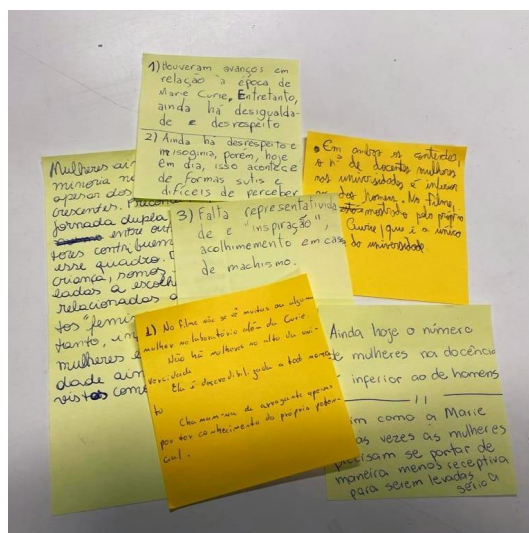 1) Houveram avanços em
relação à época de
Marie Curie, Entretanto,
ainda há desigualda-
de e desrespeito
2) Ainda há desrespeito e
misoginia, porém, hoje
em dia, isso acontece
de formas sutis e
difíceis de perceber
3) Falta representativida
de e "inspiração",
acolhimemento em caso
de machismo.
• Em ambos os contextos,
o nº de docentes mulheres
nas universidades é inferior
dos homens. No filme,
mostrado pela própria
Curie, que é a única
da universidade.
Mulheres ain
minoria n
apesar dos
crescentes.
jornada dupla
entre out
tores contribuem
esse quadro.
criança, somos
leadas a escolh
relacionadas a
tos "femin
tanto, um
mulheres e
dade ain
vistos como
1) No filme não se vê muitas ou alguma
mulher no laboratório além da Curie.
Não há mulheres no alto da uni-
versidade
Ela é descredibilizada a todo momento
b)
Chamam-na de arrogante apenas
por ter conhecimento do próprio poten-
cial.
Ainda hoje o número
de mulheres na docência
inferior ao de homens
im como a Marie
as vezes as mulheres
precisam se portar de
maneira menos receptiva
para serem levadas
a sério